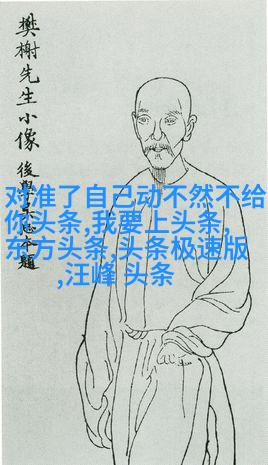 樊榭先生小像
後學本題
对淮了自己动不然不给
你头条,我要上头条,
东方头条,头条极速版
,汪峰 头条